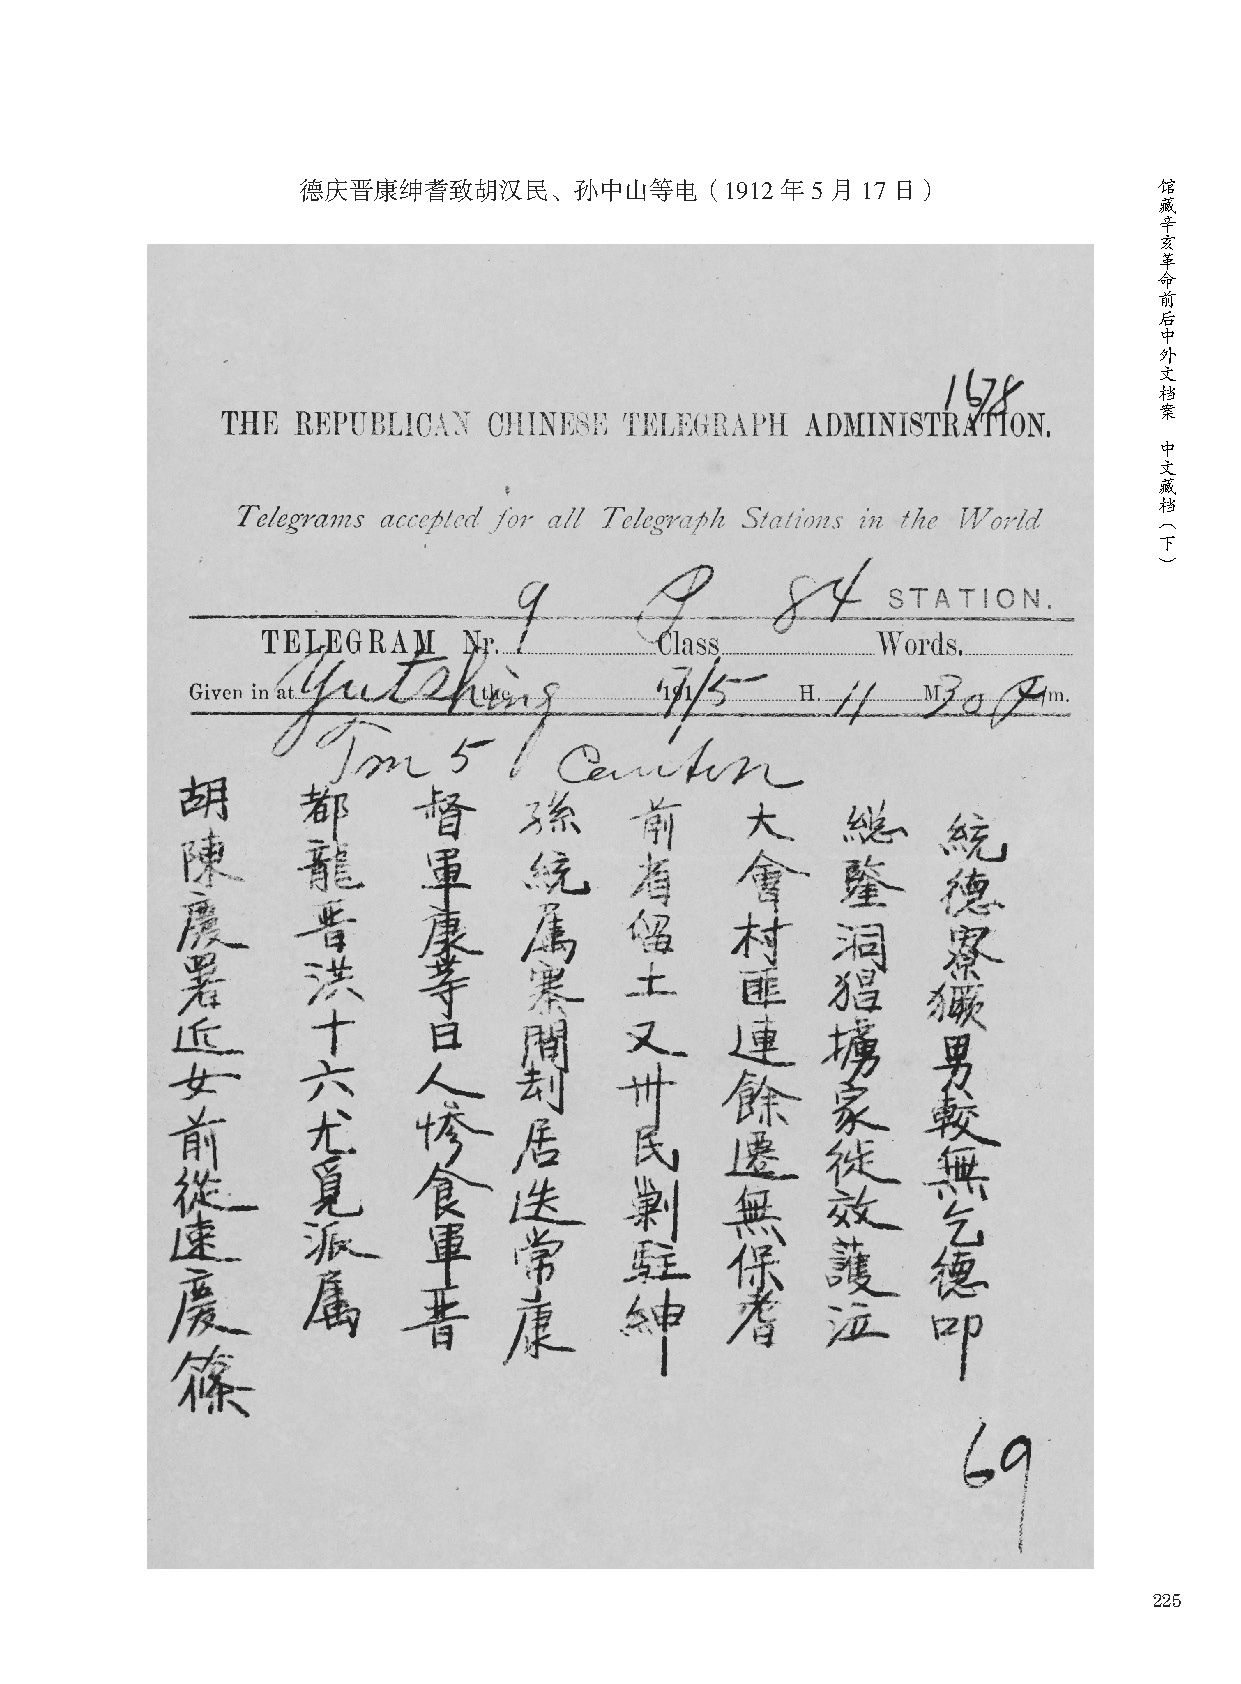 德庆晋康绅耆致胡汉民、孙中山等电（1912年5月17日）
馆藏辛亥革命前后中外文档案 中文藏档（下）
1678
THE REPUBLICAN CHINESE TELEGRAPH ADMINISTRATION.
Telegrams accepted for all Telegraph Stations in the World
9 84 STATION.
TELEGRAM Nr. Class Words.
Given in at Yutshing the 191 17/5 H. 11 M. 30 /m.
Tm 5 Canton
胡都督孫前大総統
陳龍軍統省會鑒德
慶晋康属留村洞寮
署洪等寨土匪猖獗
近十日間又連擄男
女六人刦卅餘家較
前尤慘居民遷徙無
從覓食迭剿無效乞
速派軍常駐保護德
慶属晋康紳耆泣叩
篠
69
225